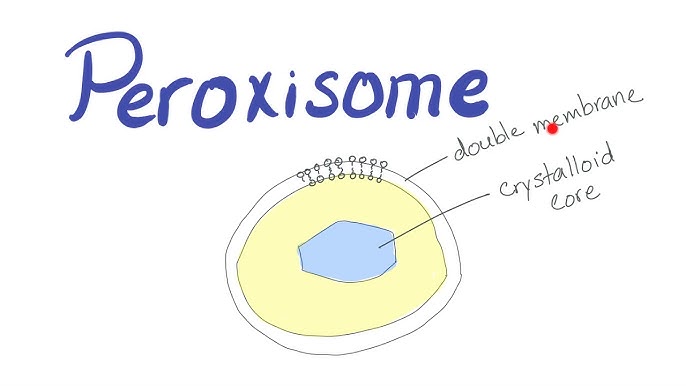 Peroxisome
double membrane
crystalloid
core